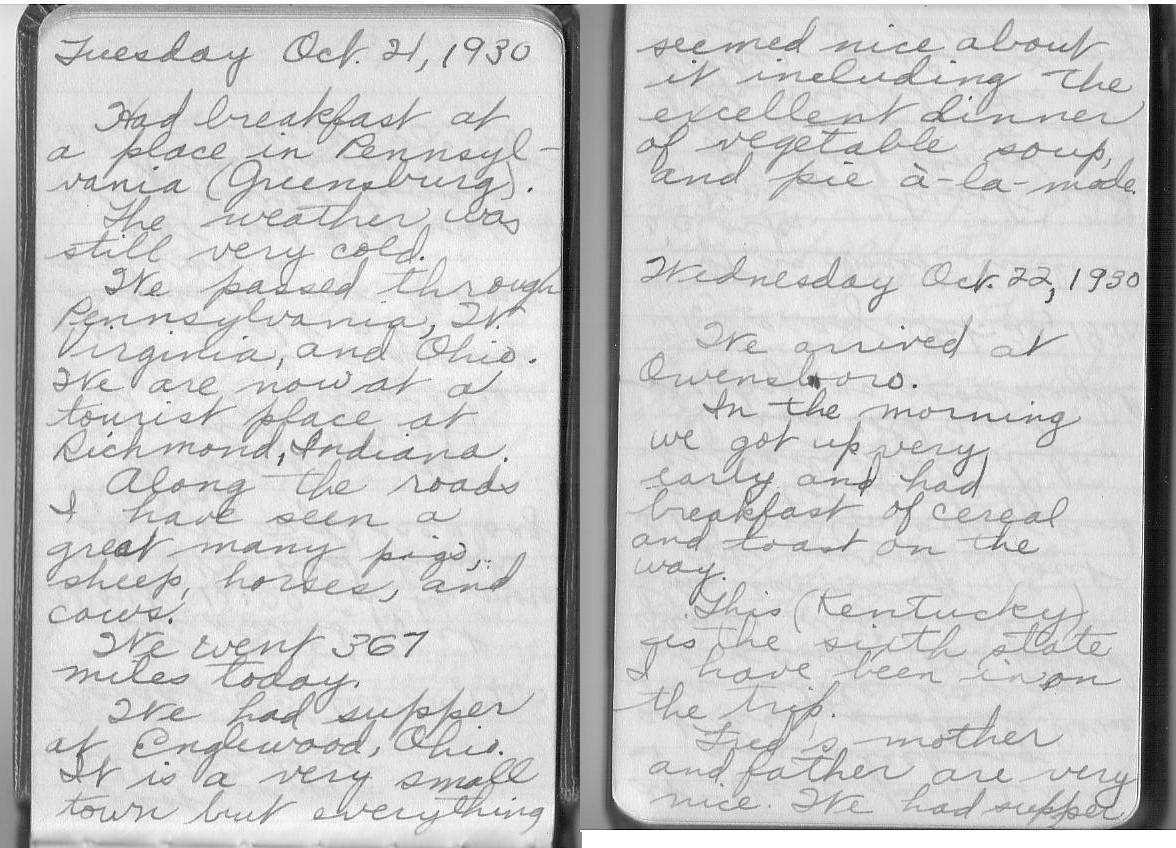 Tuesday Oct. 21, 1930
Had breakfast at
a place in Pennsyl-
vania (Greensburg).
The weather was
still very cold.
We passed through
Pennsylvania, W.
Virginia, and Ohio.
We are now at a
tourist place at
Richmond, Indiana.
Along the roads
I have seen a
great many pigs,
sheep, horses, and
cows.
We went 367
miles today.
We had supper
at Englewood, Ohio.
It is a very small
town but everything
seemed nice about
it including the
excellent dinner
of vegetable soup,
and pie à-la-mode.
Wednesday Oct. 22, 1930
We arrived at
Owensboro.
In the morning
we got up very
early and had
breakfast of cereal
and toast on the
way.
This (Kentucky)
is the sixth state
I have been in on
the trip.
Fred's mother
and father are very
nice. We had supper